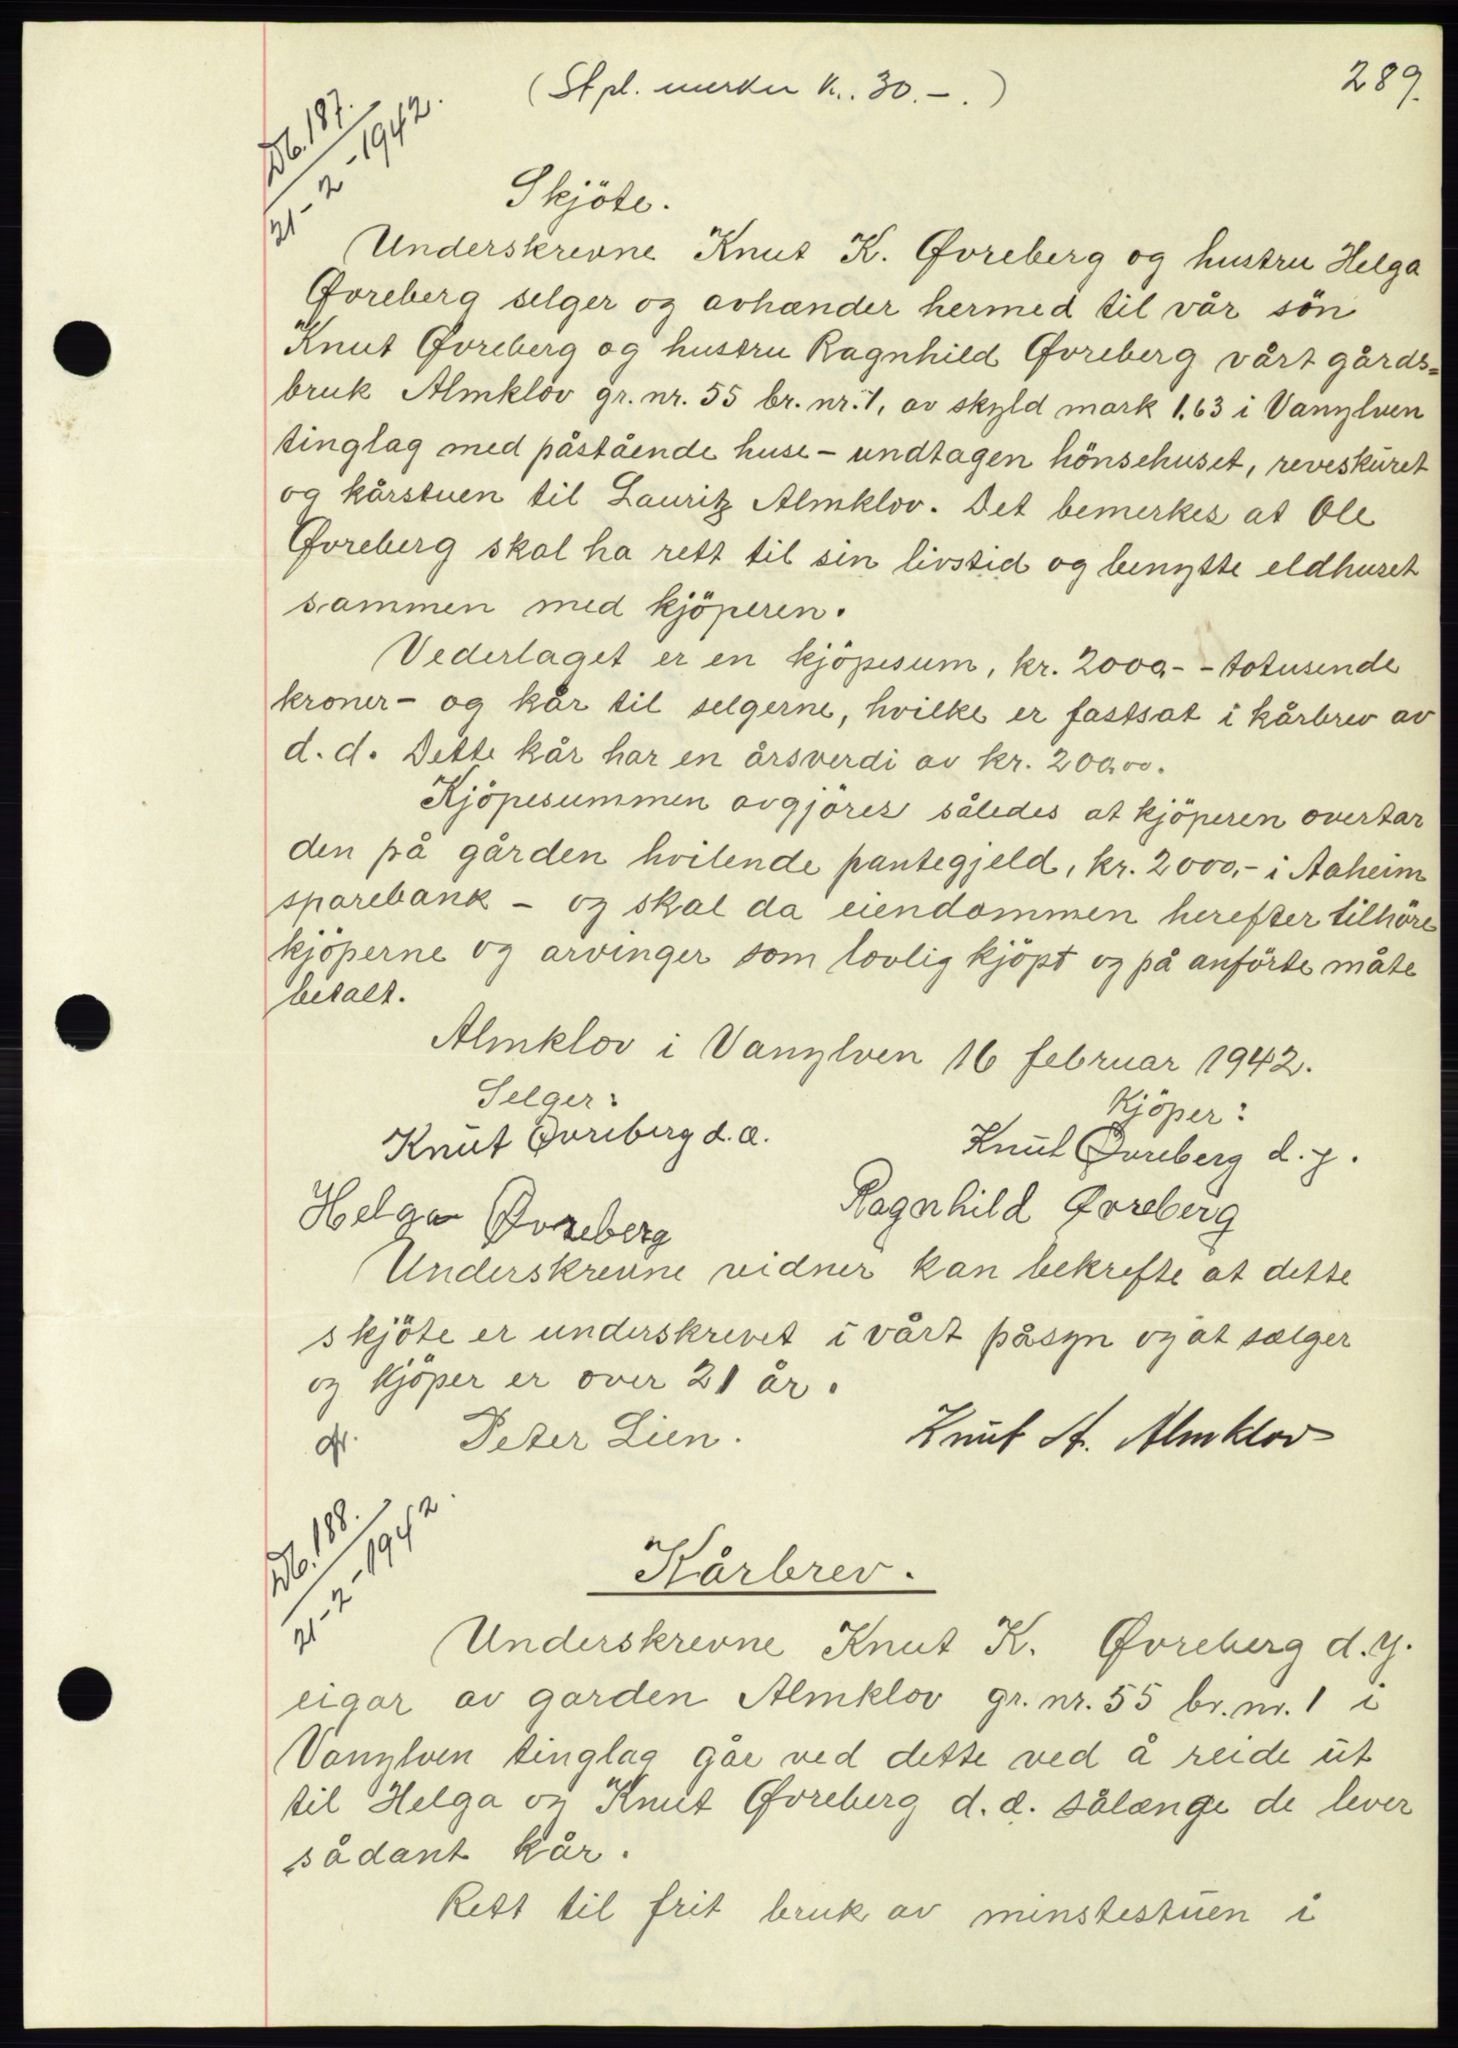 289.
(Stpl. merker kr. 30.-.)
Db. 187.
21-2-1942.
Skjöte.
Underskrevne Knut K. Øvreberg og hustru Helga
Øvreberg selger og avhænder hermed til vår sön
Knut Øvreberg og hustru Ragnhild Øvreberg vårt gårds=
bruk Almklov gr. nr. 55 br. nr. 1, av skyld mark 1.63 i Vanylven
tinglag med påstående huse - undtagen hönsehuset, reveskuret
og kårstuen til Lauritz Almklov. Det bemerkes at Ole
Øvreberg skal ha rett til sin livstid og benytte eldhuset
sammen med kjöperen.
Vederlaget er en kjöpesum, kr. 2000,- - totusende
kroner - og kår til selgerne, hvilke er fastsat i kårbrev av
d. d. Dette kår har en årsverdi av kr. 200,00.
Kjöpesummen avgjöres således at kjöperen overtar
den på gården hvilende pantegjeld, kr. 2000,- i Aaheim
sparebank - og skal da eiendommen herefter tilhöre
kjöperne og arvinger som lovlig kjöpt og på anförte måte
betalt.
Almklov i Vanylven 16 februar 1942.
Selger: Kjöper:
Knut Øvreberg d. e. Knut Øvreberg d. y.
Helga Øvreberg Ragnhild Øvreberg
Underskrevne vidner kan bekrefte at dette
skjöte er underskrevet i vårt påsyn og at sælger
og kjöper er over 21 år.
Peter Lien. Knut A. Almklov
Db. 188.
21-2-1942.
Kårbrev.
Underskrevne Knut K. Øvreberg d. y.
eigar av garden Almklov gr. nr. 55 br. nr. 1 i
Vanylven tinglag går ved dette ved å reide ut
til Helga og Knut Øvreberg d. e. sålænge de lever
sådant kår.
Rett til frit bruk av minstestuen i